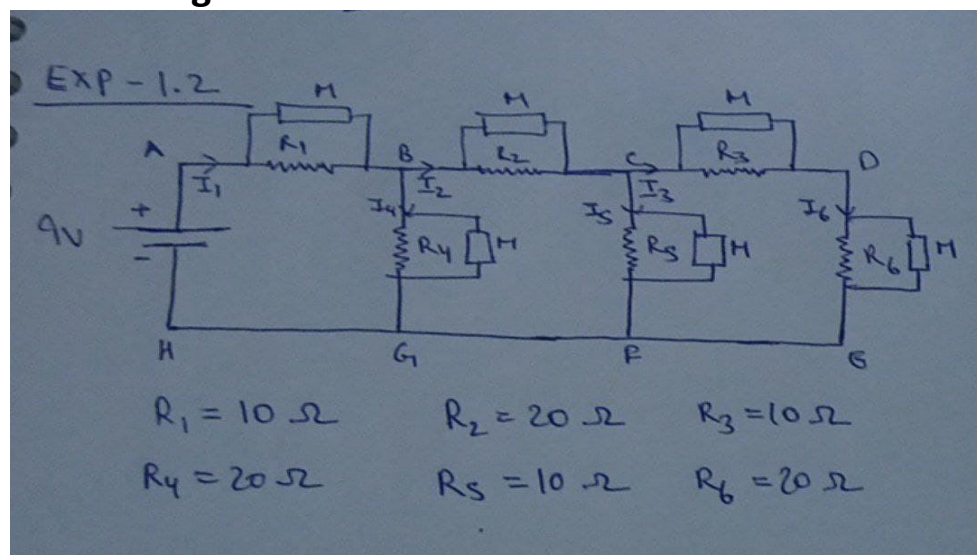 EXP - 1.2
M M M
A R1 B R2 C R3 D
I1 I2 I3
9V + I4 R4 M I5 R5 M I6 R6 M
-
H G F E
R1 = 10 Ω R2 = 20 Ω R3 = 10 Ω
R4 = 20 Ω R5 = 10 Ω R6 = 20 Ω